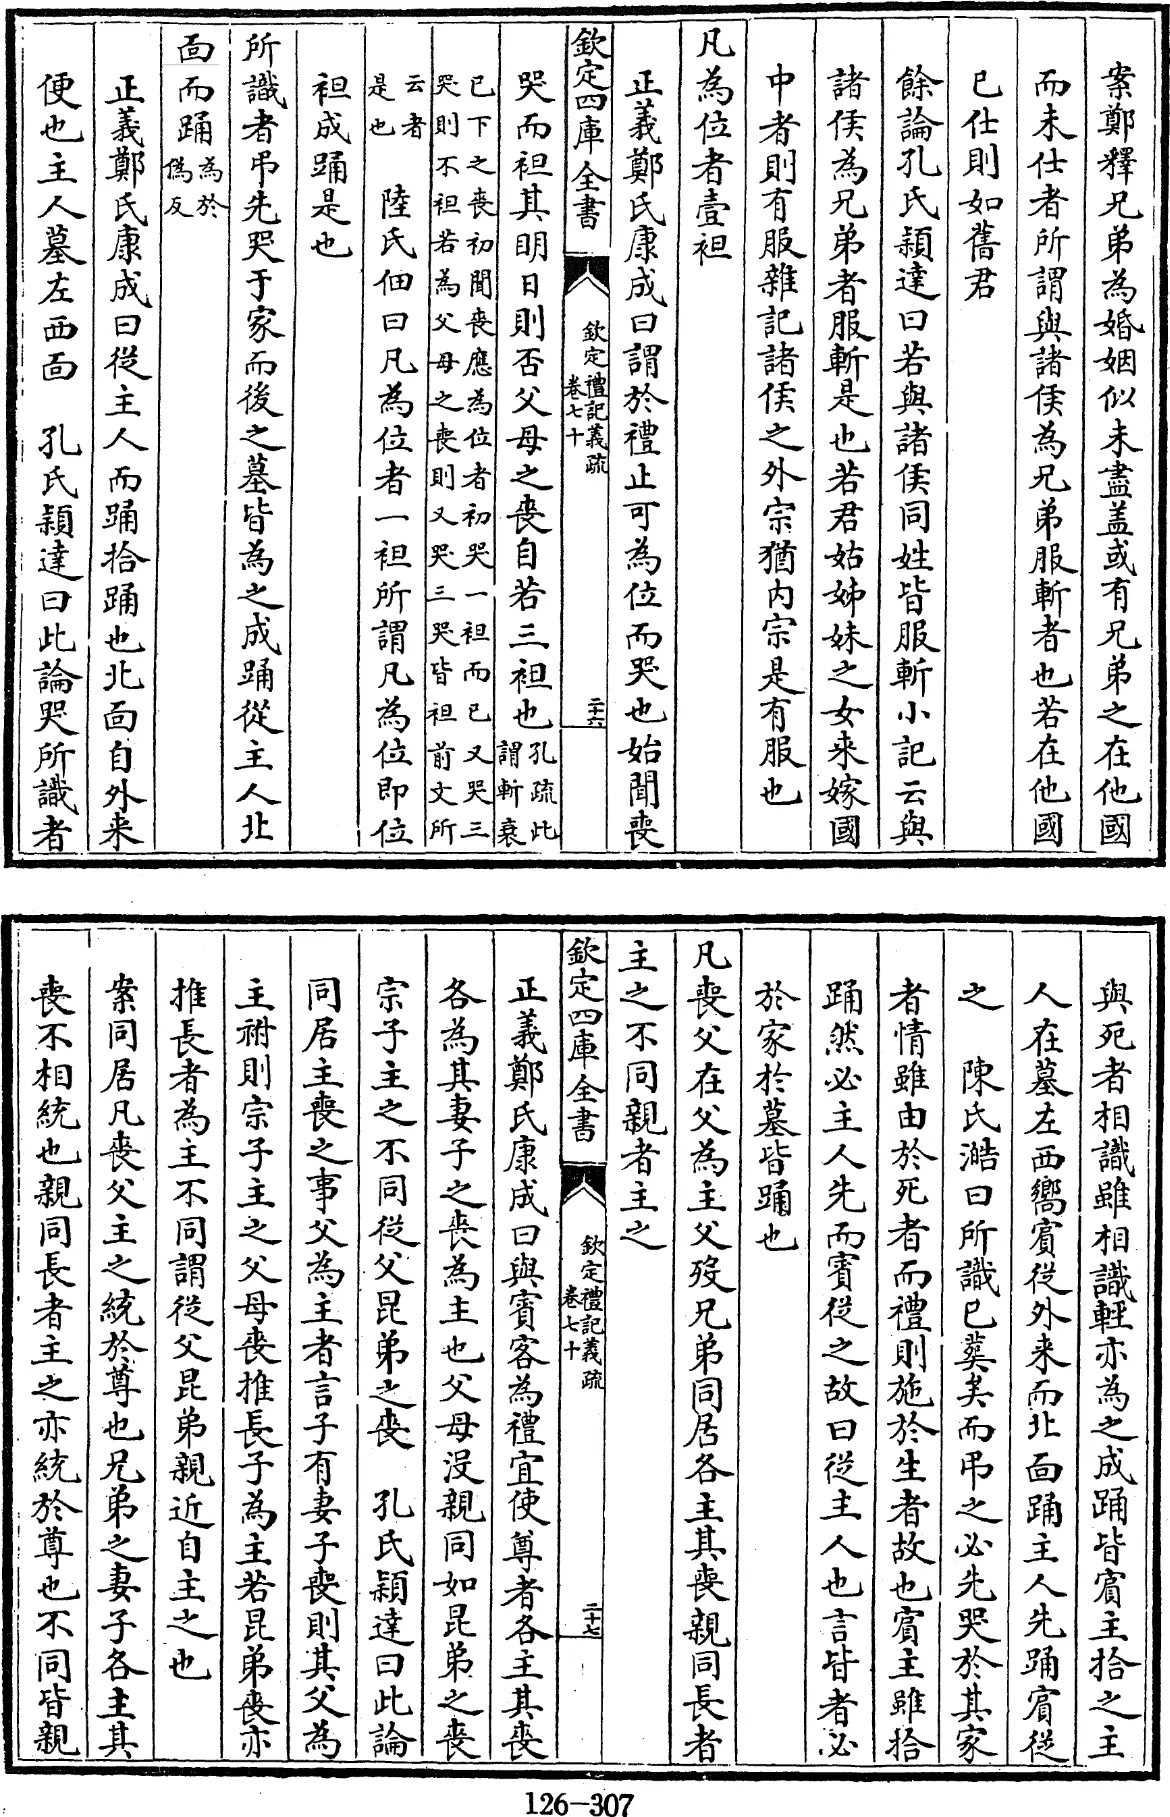 案鄭釋兄弟為婚姻似未盡盖或有兄弟之在他國
而未仕者所謂與諸侯為兄弟服斬者也若在他國
已仕則如舊君
餘論孔氏穎達曰若與諸侯同姓皆服斬小記云與
諸侯為兄弟者服斬是也若君姑姊妹之女来嫁國
中者則有服雜記諸侯之外宗猶内宗是有服也
凡為位者壹袒
正義鄭氏康成曰謂於禮止可為位而哭也始聞喪
欽定四庫全書
欽定禮記義疏
卷七十
二十六
哭而袒其明日則否父母之喪自若三袒也孔疏此謂斬衰
已下之喪初聞喪應為位者初哭一袒而已又哭三
哭則不袒若為父母之喪則又哭三哭皆袒前文所
云者是也　陸氏佃曰凡為位者一袒所謂凡為位即位
袒成踊是也
所識者弔先哭于家而後之墓皆為之成踊從主人北
面而踊為於偽反
正義鄭氏康成曰從主人而踊拾踊也北面自外来
便也主人墓左西面　孔氏穎達曰此論哭所識者
與死者相識雖相識輕亦為之成踊皆賓主拾之主
人在墓左西嚮賓從外来而北面踊主人先踊賓從
之　陳氏澔曰所識已葬矣而弔之必先哭於其家
者情雖由於死者而禮則施於生者故也賓主雖拾
踊然必主人先而賓從之故曰從主人也言皆者必
於家於墓皆踊也
凡喪父在父為主父歿兄弟同居各主其喪親同長者
主之不同親者主之
欽定四庫全書
欽定禮記義疏
卷七十
二十七
正義鄭氏康成曰與賓客為禮宜使尊者各主其喪
各為其妻子之喪為主也父母没親同如昆弟之喪
宗子主之不同從父昆弟之喪　孔氏穎達曰此論
同居主喪之事父為主者言子有妻子喪則其父為
主祔則宗子主之父母喪推長子為主若昆弟喪亦
推長者為主不同謂從父昆弟親近自主之也
案同居凡喪父主之統於尊也兄弟之妻子各主其
喪不相統也親同長者主之亦統於尊也不同皆親
126-307